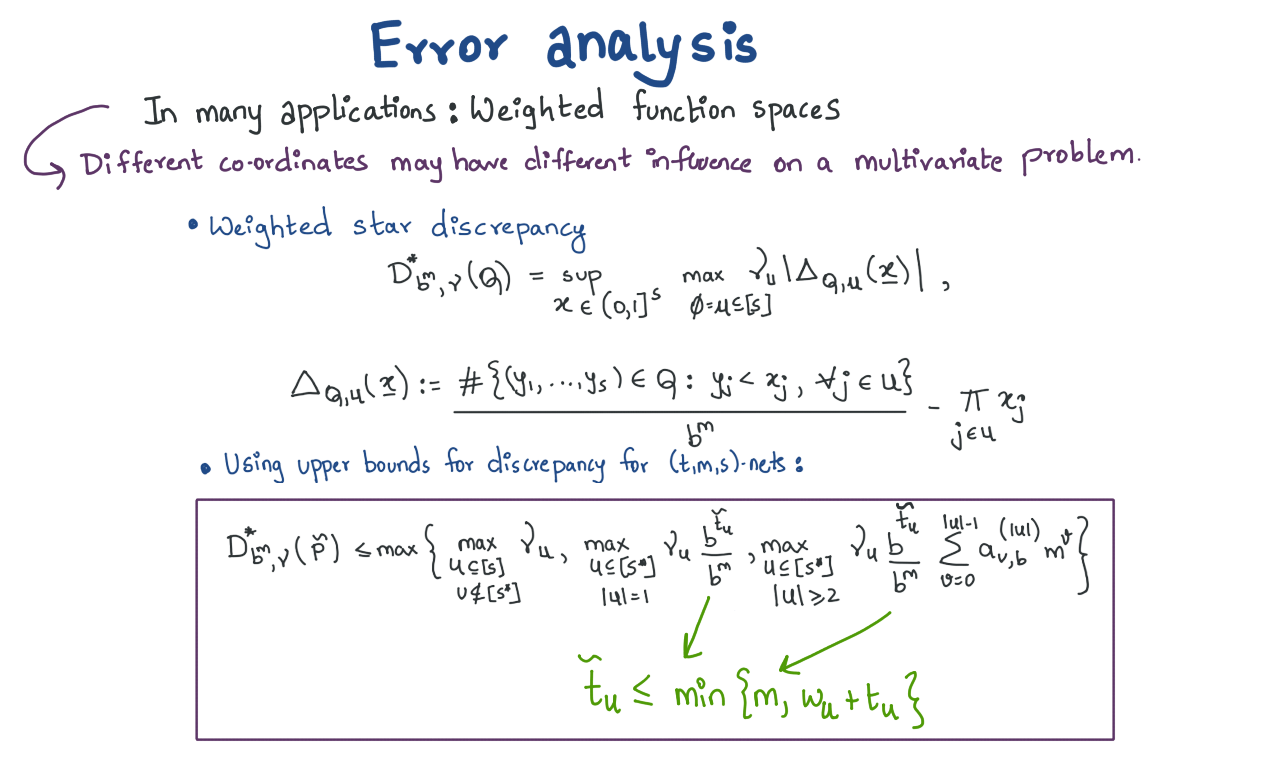 Error analysis
In many applications : Weighted function spaces
Different co-ordinates may have different influence on a multivariate problem.
• Weighted star discrepancy
D*_{b^m, γ}(Q) = sup_{x ∈ (0,1]^s} max_{∅=u⊆[s]} γ_u |Δ_{Q,u}(x)| ,
Δ_{Q,u}(x) := #{(y_1, ..., y_s) ∈ Q : y_j < x_j , ∀j ∈ u} / b^m - Π_{j∈u} x_j
• Using upper bounds for discrepancy for (t,m,s)-nets :
D*_{b^m, γ}(P̃) ≤ max { max_{u⊆[s] u⊄[s*]} γ_u , max_{u⊆[s*] |u|=1} γ_u b^{t̃_u} / b^m , max_{u⊆[s*] |u|≥2} γ_u b^{t̃_u} / b^m Σ_{v=0}^{|u|-1} a_{v,b}^{(|u|)} m^v }
t̃_u ≤ min {m, w_u + t_u}